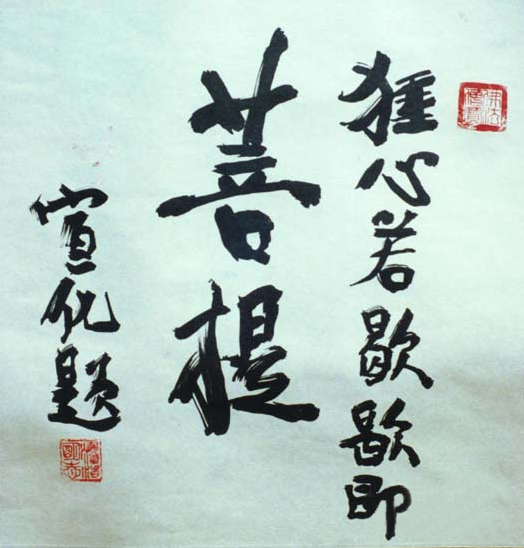 狂心若歇歇即
菩提
宣化題